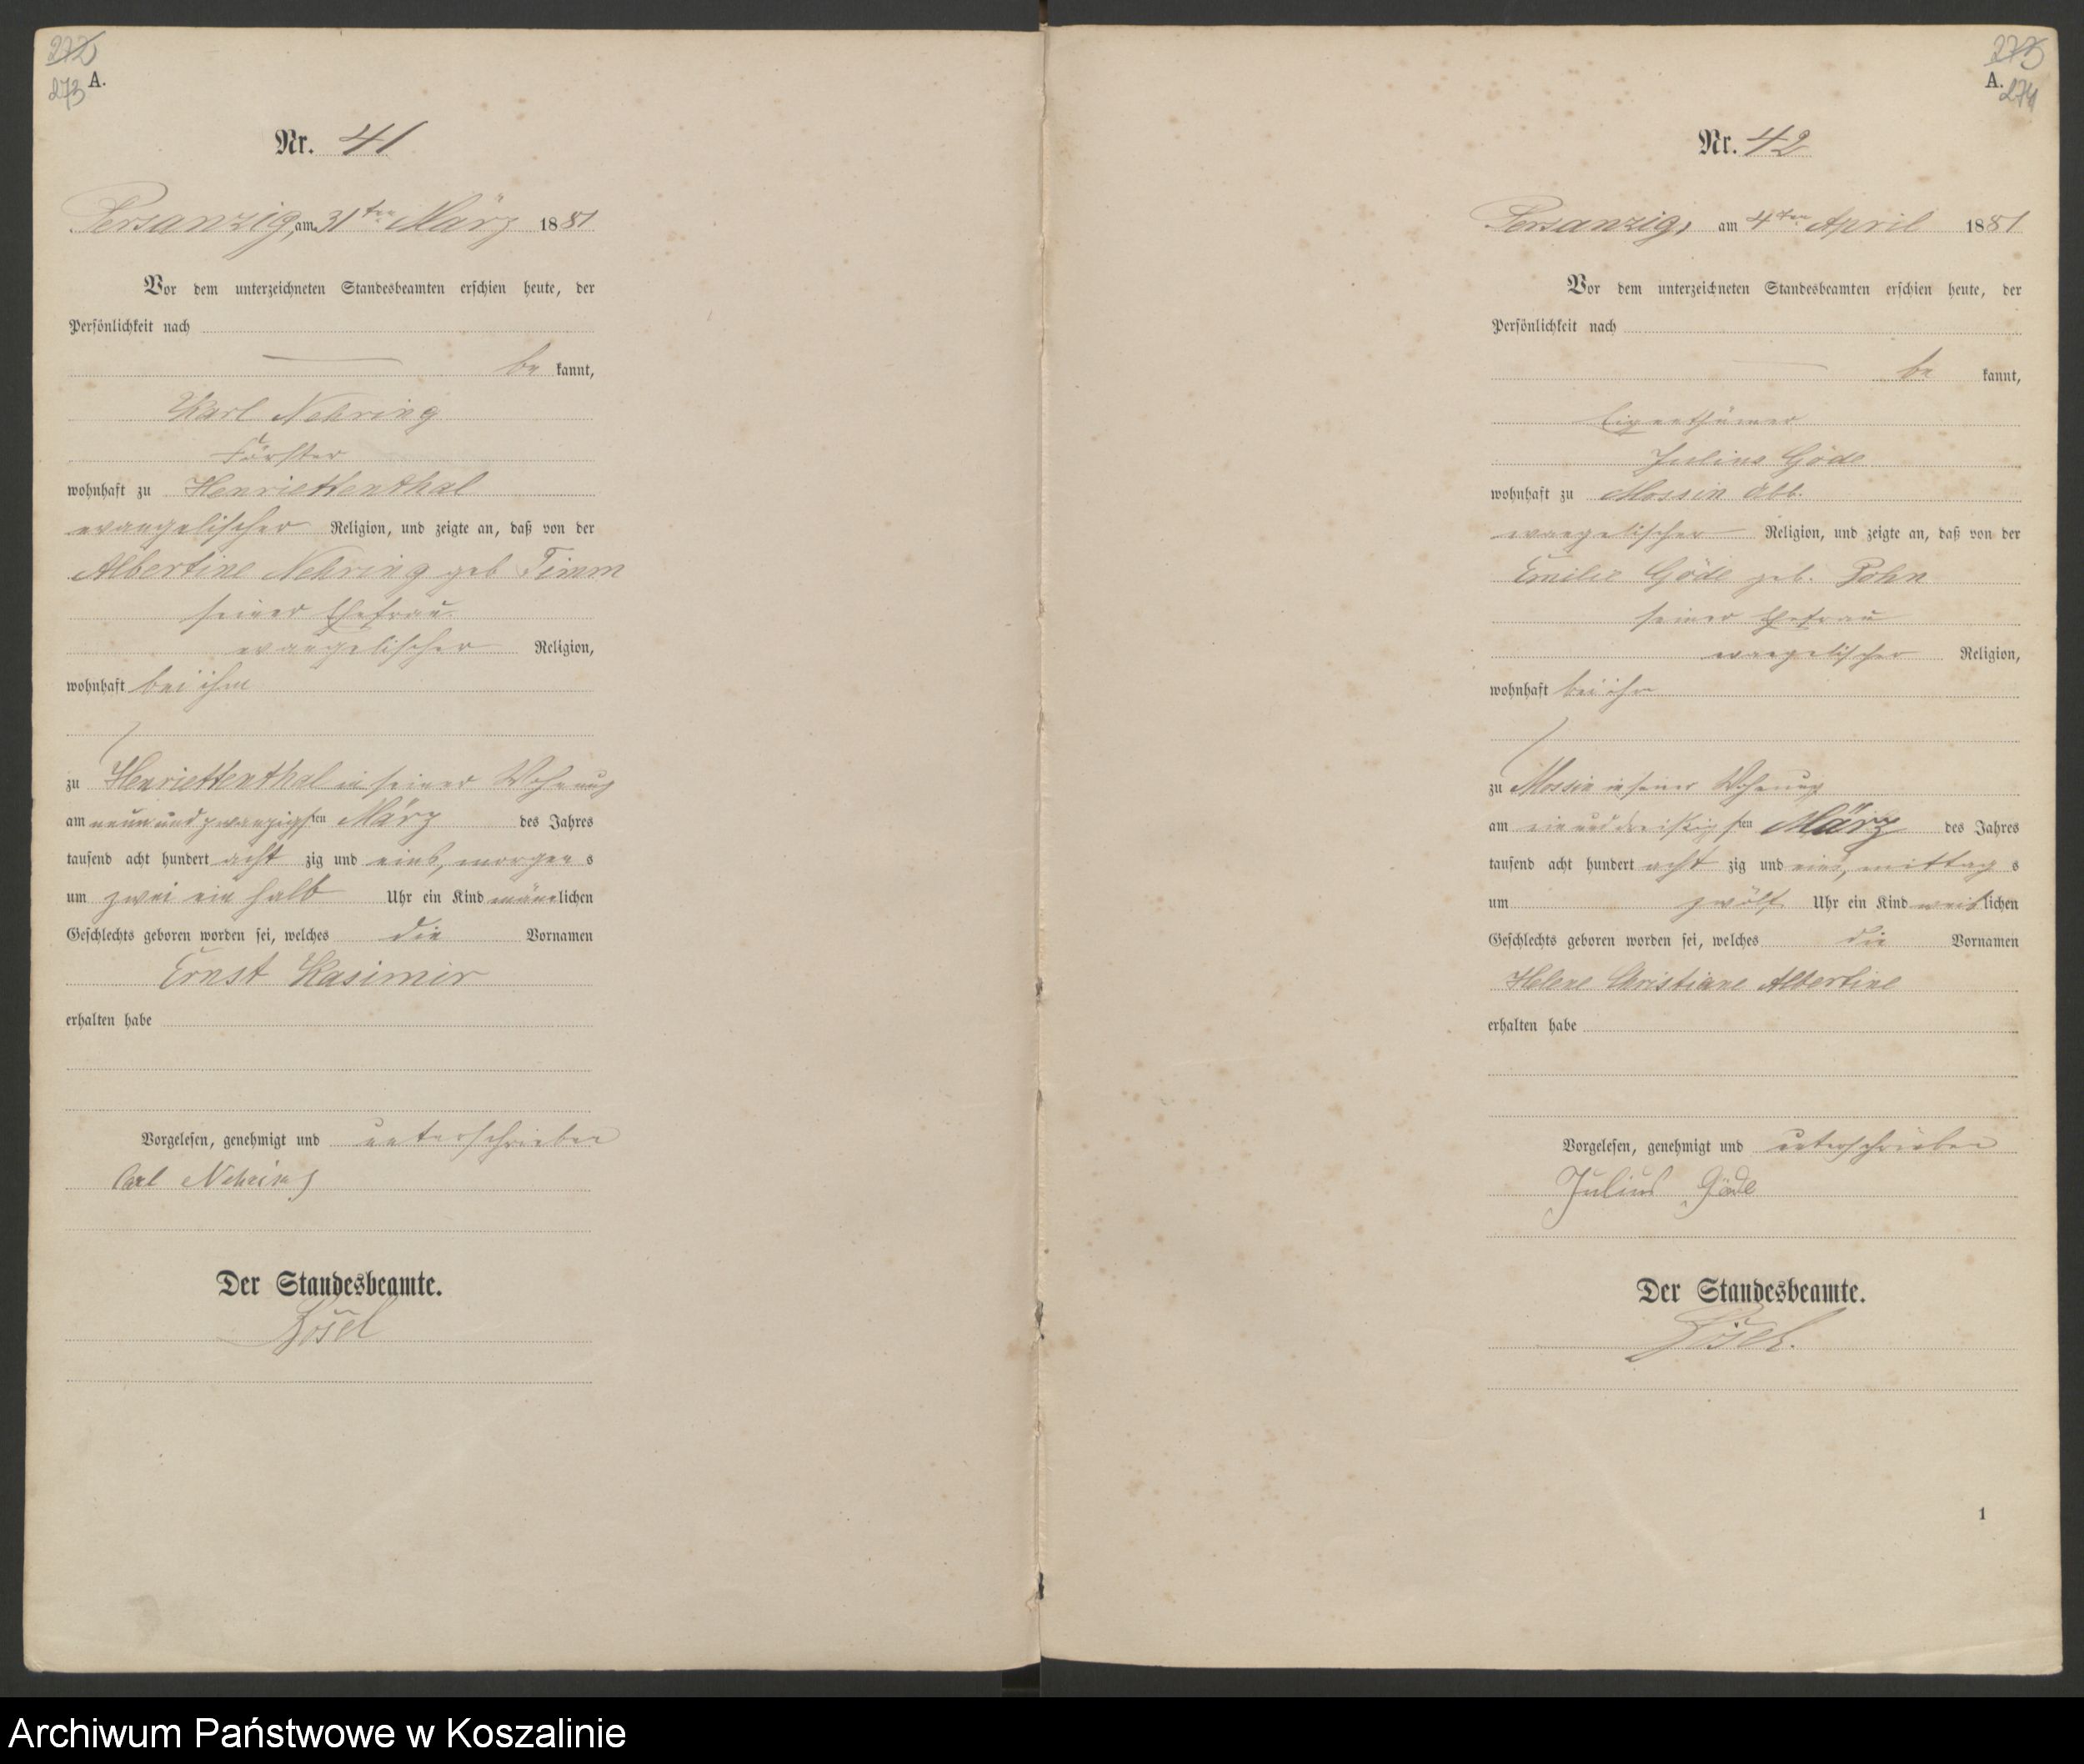 272
273 A.
Nr. 41
Persanzig, am 31ten März 1881
Vor dem unterzeichneten Standesbeamten erschien heute, der
Persönlichkeit nach
be kannt,
Karl Nehring
Förster
wohnhaft zu Henriettenthal
evangelischer Religion, und zeigte an, daß von der
Albertine Nehring geb Timm
seiner Ehefrau
evangelischer Religion,
wohnhaft bei ihm
zu Henriettenthal in seiner Wohnung
am neun und zwanzigsten März des Jahres
tausend acht hundert acht zig und eins, morgen s
um zwei ein halb Uhr ein Kind männlichen
Geschlechts geboren worden sei, welches die Vornamen
Ernst Kasimir
erhalten habe
Vorgelesen, genehmigt und unterschrieben
Carl Nehring
Der Standesbeamte.
273
A.
274
Nr. 42
Persanzig, am 4ten April 1881
Vor dem unterzeichneten Standesbeamten erschien heute, der
Persönlichkeit nach
be kannt,
Eigenthümer
Julius Göde
wohnhaft zu Mossin Abb.
evangelischer Religion, und zeigte an, daß von der
Emilie Göde geb. Pohn
seiner Ehefrau
evangelischer Religion,
wohnhaft bei ihm
zu Mossin in seiner Wohnung
am ein und dreißigsten März des Jahres
tausend acht hundert acht zig und eins, mittag s
um zwölf Uhr ein Kind weiblichen
Geschlechts geboren worden sei, welches die Vornamen
Helene Christiane Albertine
erhalten habe
Vorgelesen, genehmigt und unterschrieben
Julius Göde
Der Standesbeamte.
1
Archiwum Państwowe w Koszalinie